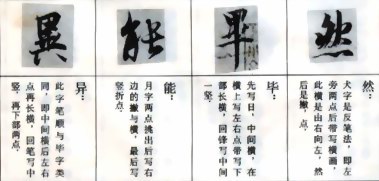 然
畢
能
異
然：
犬字是反笔法，即左
旁两点后带写横画，
此横是由右向左，然
后是撇，点．
毕：
先写日，中间横，在
横上写左右点带写下
部长横，回锋写中间
一竖．
能：
月字两点挑出后写右
边的撇与横，最后写
竖折点．
异：
此字笔顺与毕字类
同，即中间横后左右
点再长横，回笔写中
竖，再下部两点．